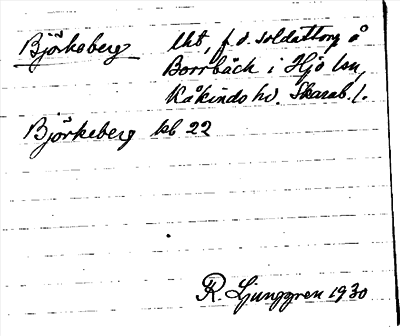 Björkeberg lht, f.d. soldattorp å
Borrbäck i Hjo lsn,
Kåkinds hd. Skarab. l.
Björkeberg kb 22
R. Ljunggren 1930